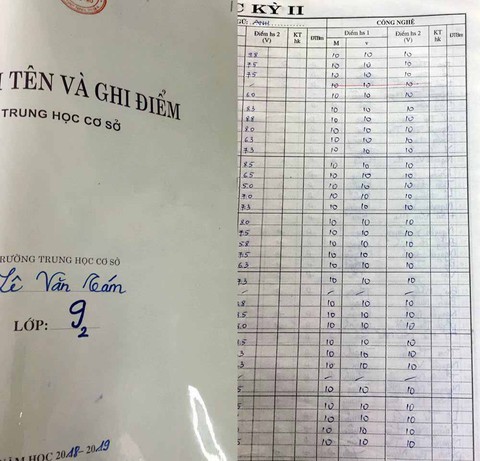 TÊN VÀ GHI ĐIỂM
TRUNG HỌC CƠ SỞ
RƯỜNG TRUNG HỌC CƠ SỞ
Lê Văn Tám
LỚP: 9 2
NĂM HỌC 2018-2019
C KỲ II
NGỮ: Anh CÔNG NGHỆ
Điểm hs 2 (V) KT hk ĐTBm Điểm hs 1 Điểm hs 2 (V) KT hk ĐTBm
M v
10 10 10
7.5 10 10 10
7.5 10 10 10
10 10 10
6.0 10 10 10
8.3 10 10 10
8.8 10 10 10
8.0 10 10 10
6.3 10 10 10
7.3 10 10 10
8.5 10 10 10
6.5 10 10 10
5.0 10 10 10
7.0 10 10 10
7.3 10 10 10
8.0 10 10 10
9.5 10 10 10
5.8 10 10 10
7.5 10 10 10
6.3 10 10 10
7.3 10 10 10
.8 10 10 10
.5 10 10 10
.0 10 10 10
.5 10 10 10
3 10 10 10
3 10 10 10
5 10 10 10
10 10 10
10 10 10
10 10 10
10 10 10
10 10 10